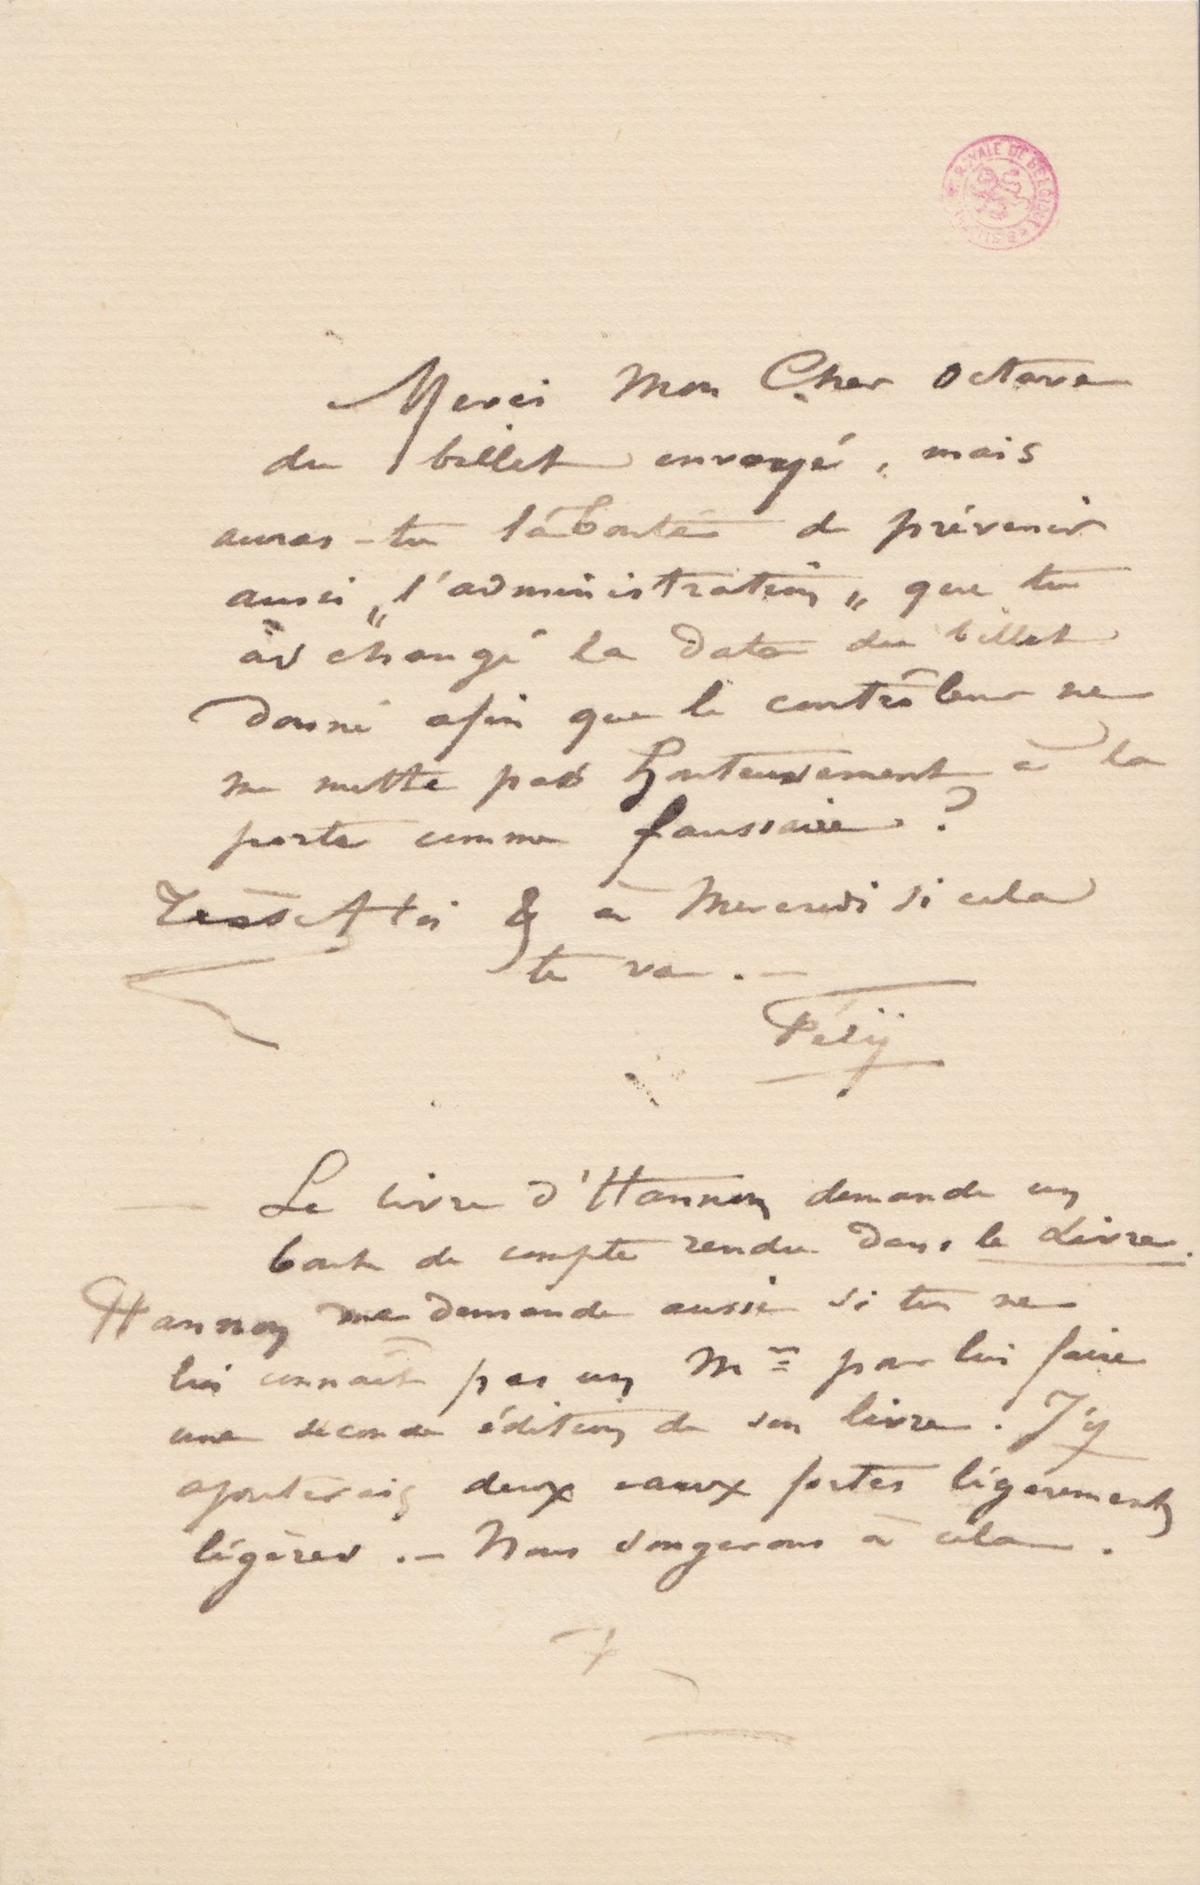 Bque ROYALE DE BELGIQUE
Merci Mon Cher Octave
du billet envoyé, mais
auras-tu la bonté de prévenir
aussi „l'administration„ que tu
as changé la date du billet
donné afin que le contrôleur ne
me mette pas honteusement à la
porte comme faussaire ?
A toi & à Mercredi si cela
te va . —
Fély
Le livre d'Hannon demande un
bout de compte rendu dans le Livre.
Hannon me demande aussi si tu ne
lui connait pas un Mr pour lui faire
une seconde édition de son livre. J'y
ajouterais deux eaux fortes légèrement
légères . — Nous songerons à cela .